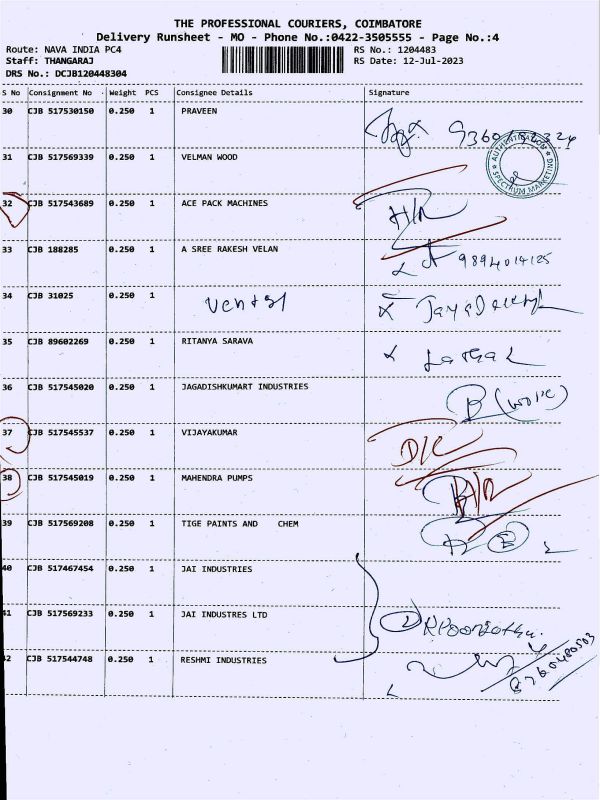 THE PROFESSIONAL COURIERS, COIMBATORE
Delivery Runsheet - MO - Phone No.:0422-3505555 - Page No.:4
Route: NAVA INDIA PC4 RS No.: 1204483
Staff: THANGARAJ RS Date: 12-Jul-2023
DRS No.: DCJB120448304
S No Consignment No Weight PCS Consignee Details Signature
30 CJB 517530150 0.250 1 PRAVEEN
31 CJB 517569339 0.250 1 VELMAN WOOD
AUTHENTICATION SPECTRUM MARKETING
32 CJB 517543689 0.250 1 ACE PACK MACHINES
33 CJB 188285 0.250 1 A SREE RAKESH VELAN 9894014125
34 CJB 31025 0.250 1
35 CJB 89602269 0.250 1 RITANYA SARAVA
36 CJB 517545020 0.250 1 JAGADISHKUMART INDUSTRIES
37 CJB 517545537 0.250 1 VIJAYAKUMAR D/C
38 CJB 517545019 0.250 1 MAHENDRA PUMPS
39 CJB 517569208 0.250 1 TIGE PAINTS AND CHEM
40 CJB 517467454 0.250 1 JAI INDUSTRIES
41 CJB 517569233 0.250 1 JAI INDUSTRES LTD
42 CJB 517544748 0.250 1 RESHMI INDUSTRIES